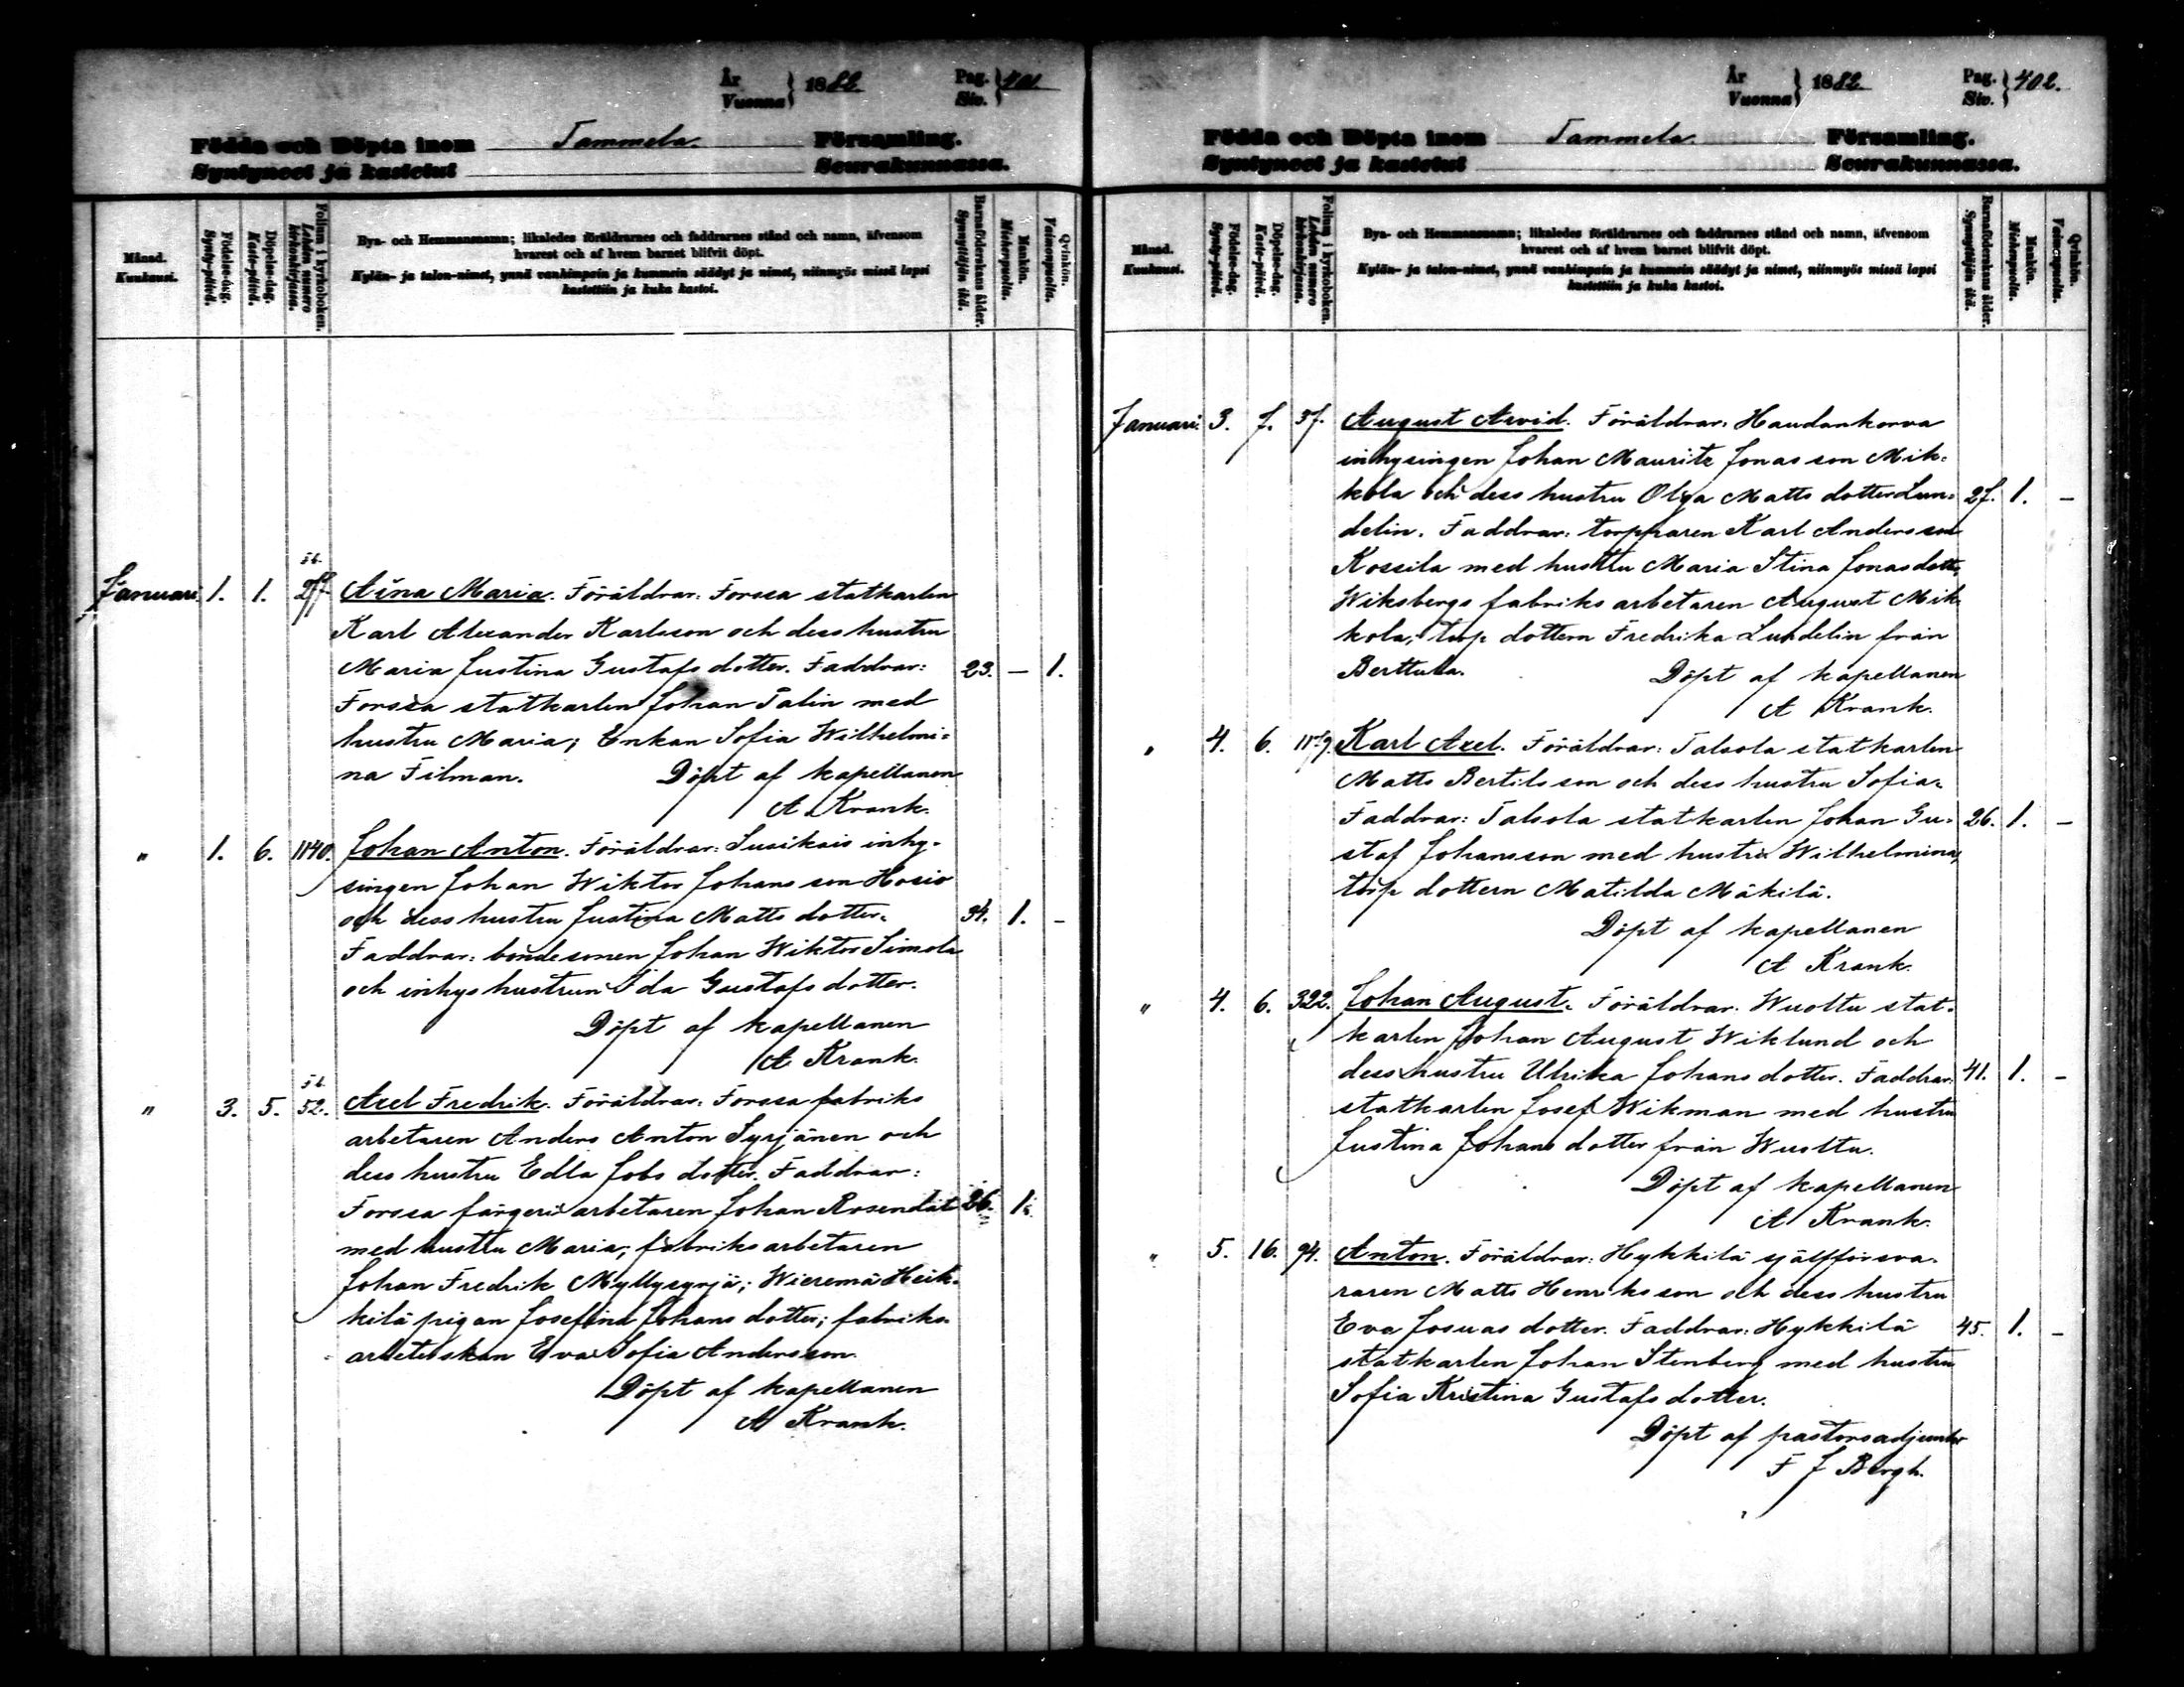 År
Vuonna } 1882
Pag.
Siv. } 401
Födda och Döpta inom Tammela Församling.
Syntyneet ja kastetut Seurakunnassa.
Månad.
Kuukausi.
Födelse-dag.
Synty-päivä.
Döpelse-dag.
Kaste-päivä.
Folium i kyrkoboken.
Lehden numero kirkonkirjassa.
Bya- och Hemmansnamn; likaledes föräldrarnes och faddrarnes stånd och namn, äfvensom
hvarest och af hvem barnet blifvit döpt.
Kylän- ja talon-nimet, ynnä vanhimpain ja kummein säädyt ja nimet, niinmyös missä lapsi
kastettiin ja kuka kastoi.
Barnaföderskans ålder.
Synnyttäjän ikä.
Mankön.
Miehenpuolia.
Qvinkön.
Vaimonpuolia.
Januari. 1. 1. Aina Maria. Föräldrar: Forssa statkarlen
Karl Alexander Karlsson och dess hustru
Maria Justina Gustafsdotter. Faddrar: 23. — 1.
Forssa statkarlen Johan Talin med
hustru Maria; Enkan Sofia Wilhelmi-
na Filman. Döpt af kapellanen
A Krank.
" 1. 6. 1140. Johan Anton. Föräldrar: Susikais inhy-
singen Johan Wiktor Johansson Hosio
och dess hustru Justina Matts dotter. 34. 1. –
Faddrar: bondesonen Johan Wiktor Simola
och inhys hustrun Ida Gustafs dotter.
Döpt af kapellanen
A Krank.
" 3. 5. 52. Axel Fredrik. Föräldrar: Forssa fabriks
arbetaren Anders Anton Syrjänen och
dess hustru Edla Jobs dotter. Faddrar:
Forssa färgeri arbetaren Johan Rosendal 26. 1.
med hustru Maria; fabriks arbetaren
Johan Fredrik Myllysyrjä; Wieremä Heik-
kilä pigan Josefina Johans dotter; fabriks-
arbeterskan Eva Sofia Andersson.
Döpt af kapellanen
A Krank.
År
Vuonna } 1882
Pag.
Siv. } 402.
Födda och Döpta inom Tammela Församling.
Syntyneet ja kastetut Seurakunnassa.
Månad.
Kuukausi.
Födelse-dag.
Synty-päivä.
Döpelse-dag.
Kaste-päivä.
Folium i kyrkoboken.
Lehden numero kirkonkirjassa.
Bya- och Hemmansnamn; likaledes föräldrarnes och faddrarnes stånd och namn, äfvensom
hvarest och af hvem barnet blifvit döpt.
Kylän- ja talon-nimet, ynnä vanhimpain ja kummein säädyt ja nimet, niinmyös missä lapsi
kastettiin ja kuka kastoi.
Barnaföderskans ålder.
Synnyttäjän ikä.
Mankön.
Miehenpuolia.
Qvinkön.
Vaimonpuolia.
Januari. 3. 7. 37. August Arvid. Föräldrar: Haudankorva
inhysingen Johan Mauritz Jonasson Mik-
kola och dess hustru Olga Matts dotter Lun- 27. 1. –
delin. Faddrar: torpparen Karl Andersson
Kossila med hustru Maria Stina Jonasdott,
Wiksbergs fabriks arbetaren August Mik-
kola; torp dottern Fredrika Lundelin från
Berttula. Döpt af kapellanen
A Krank.
" 4. 6. Karl Axel. Föräldrar: Talsola statkarlen
Matts Bertilsson och dess hustru Sofia.
Faddrar: Talsola statkarlen Johan Gu- 26. 1. –
staf Johansson med hustru Wilhelmina,
torp dottern Matilda Mäkilä.
Döpt af kapellanen
A Krank.
" 4. 6. 322. Johan August. Föräldrar: Wuoltu stat-
karlen Johan August Wiklund och
dess hustru Ulrika Johans dotter. Faddrar: 41. 1. –
statkarlen Josef Wikman med hustru
Justina Johans dotter från Wuoltu.
Döpt af kapellanen
A Krank.
" 5. 16. 94. Anton. Föräldrar: Hykkilä självförsva-
raren Matts Henriksson och dess hustru
Eva Josuas dotter. Faddrar: Hykkilä 45. 1. –
statkarlen Johan Stenberg med hustru
Sofia Kristina Gustafs dotter.
Döpt af pastorsadjunkten
F J Bergh.